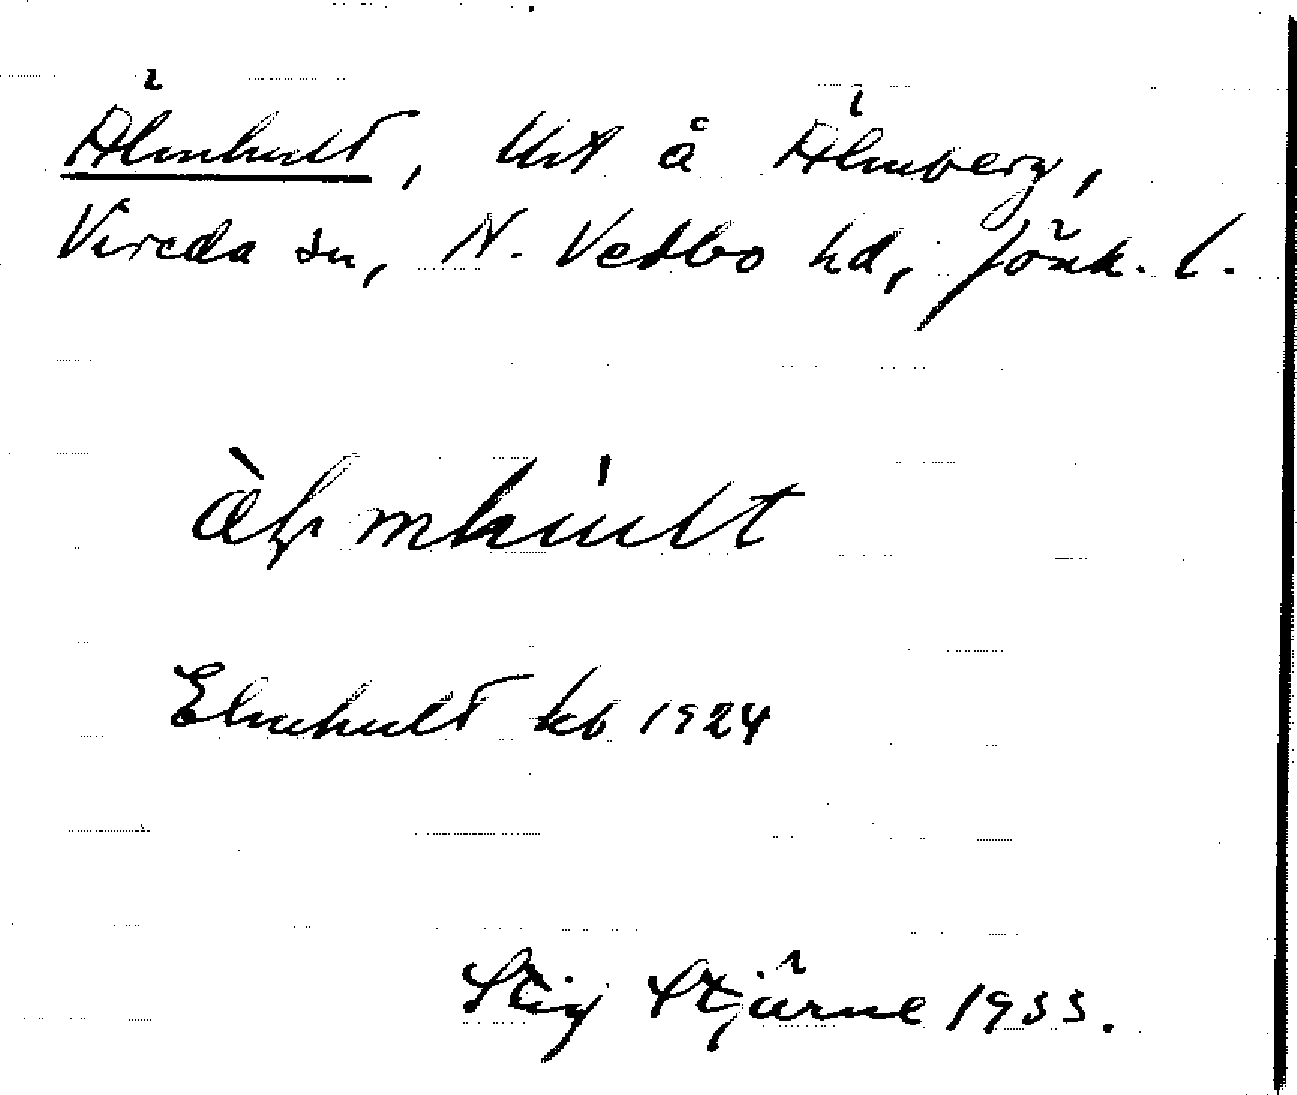 Älmhult, lht å Älmberg,
Vireda sn, N. Vedbo hd, Jönk. l.
Elmhult kb 1924
Stig Stjärne 1933.